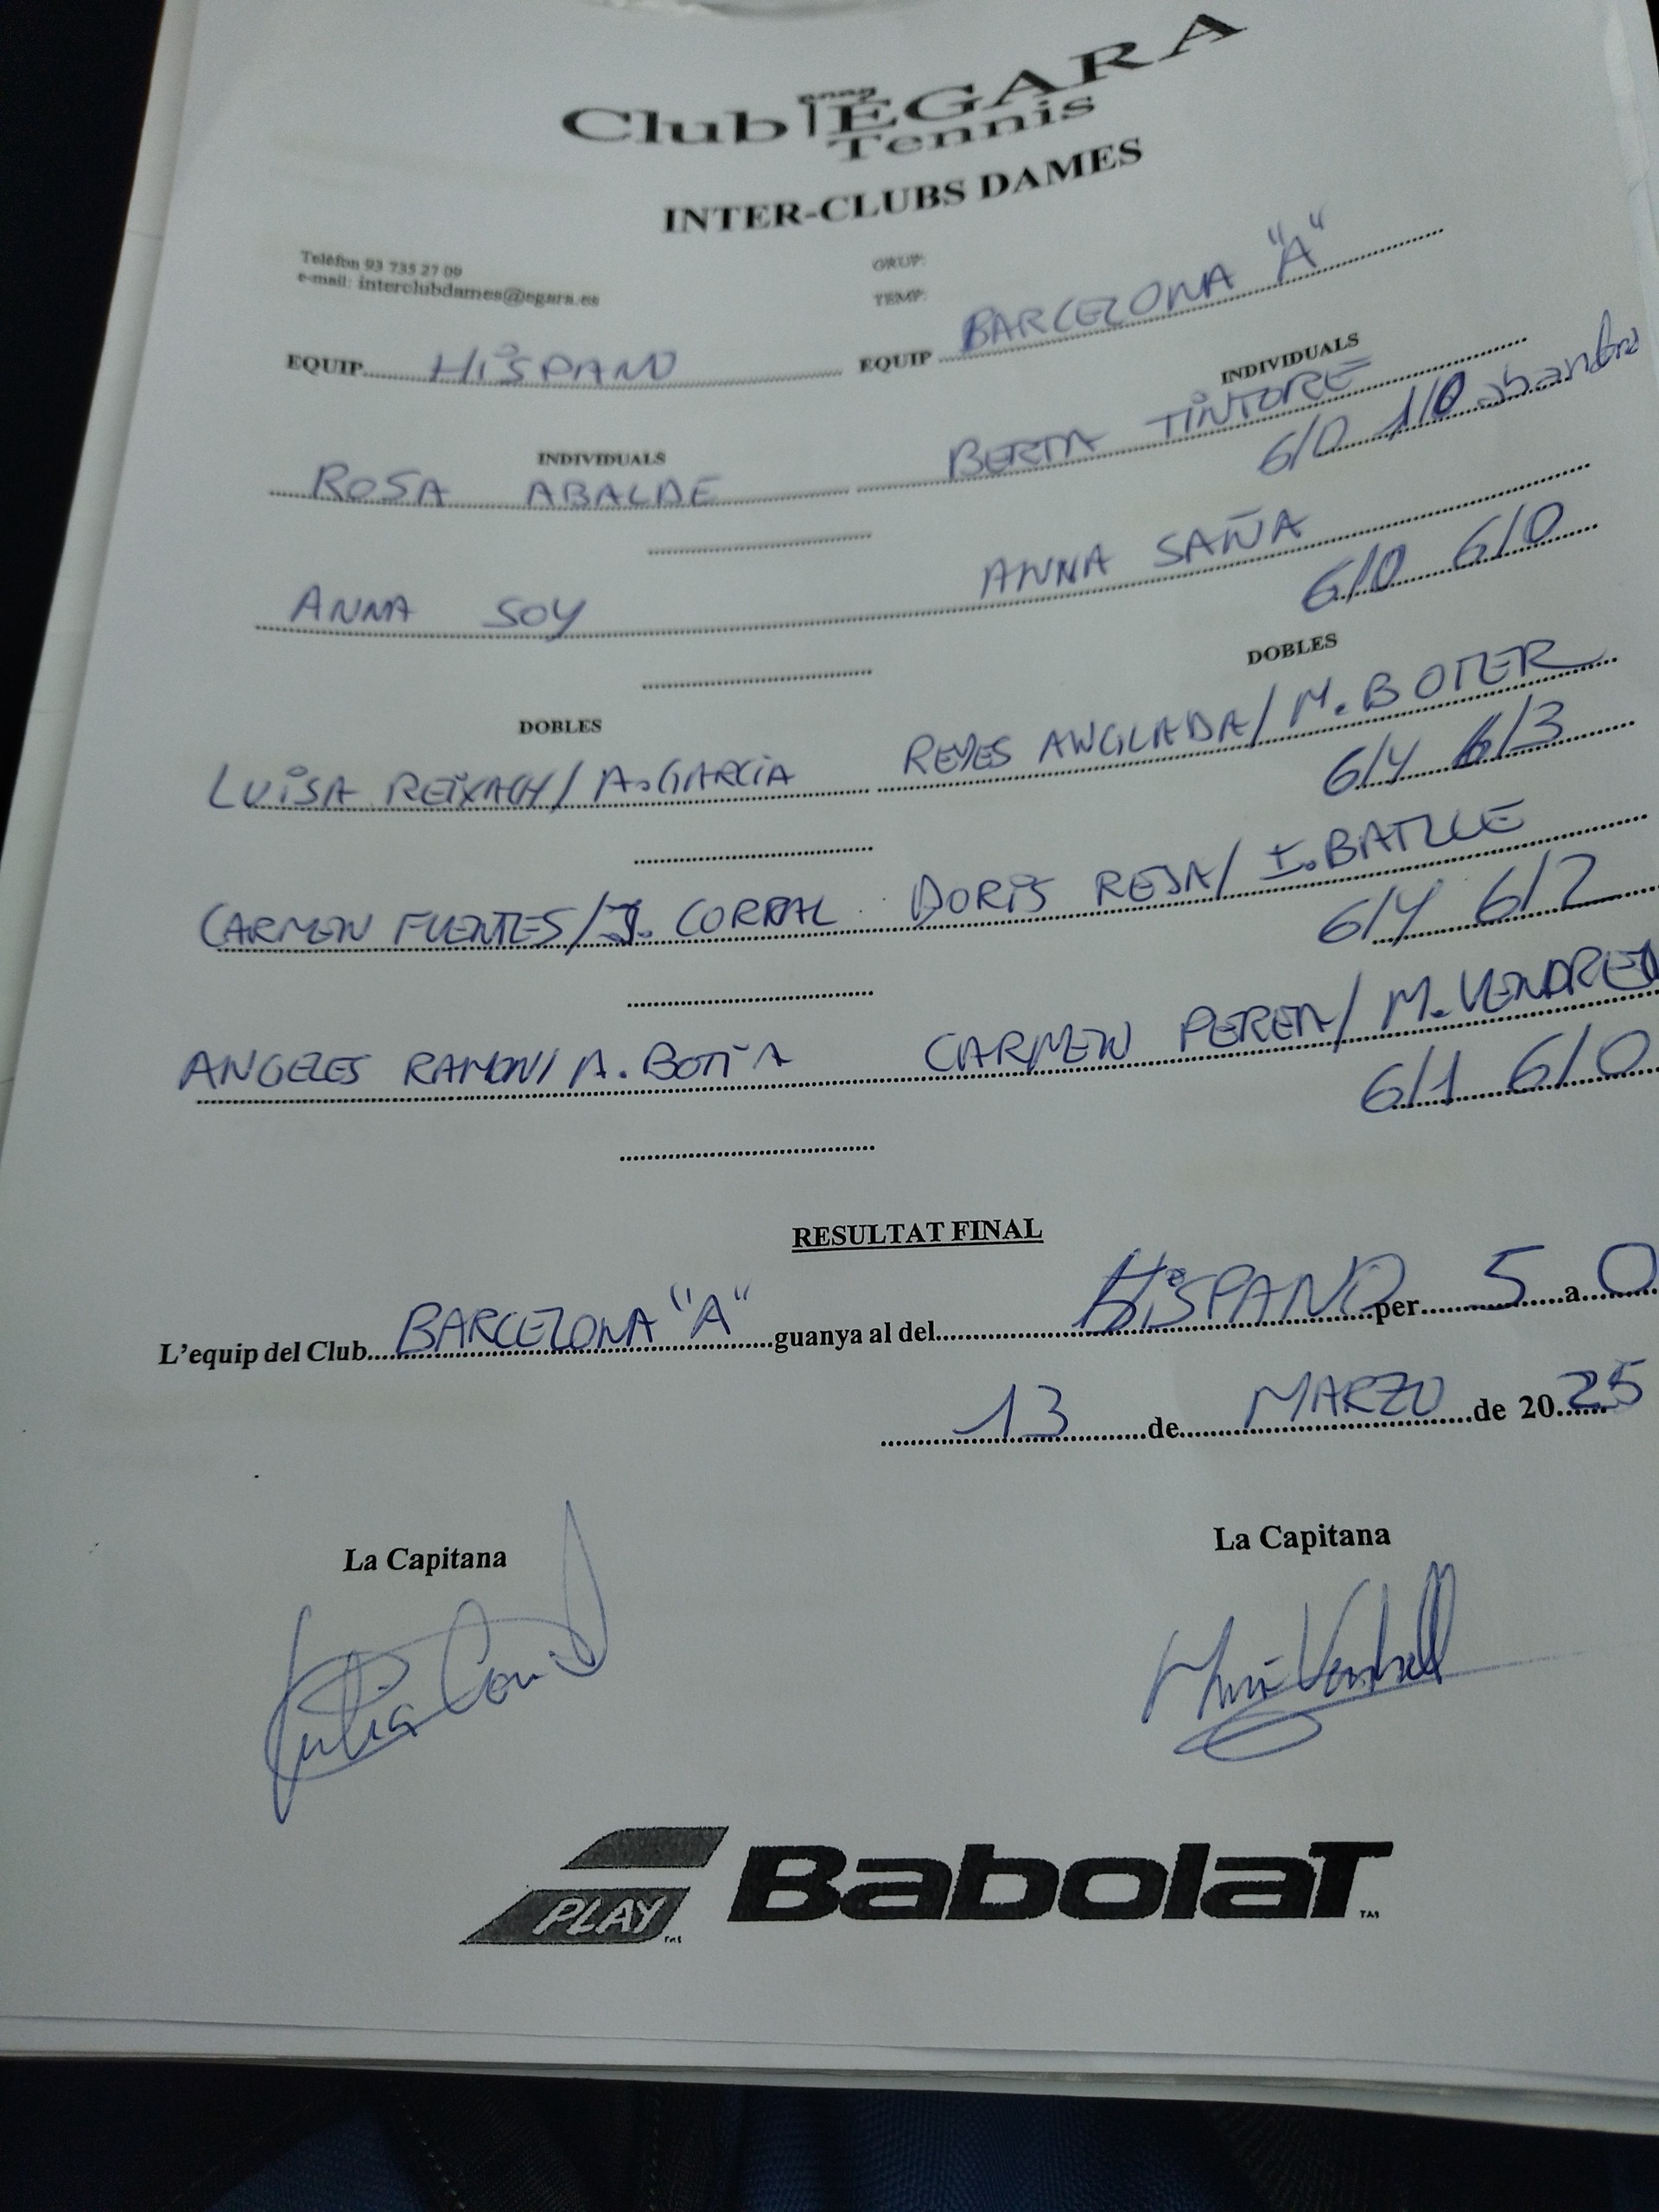 Club EGARA
Tennis
INTER-CLUBS DAMES
Telèfon 93 735 27 09
e-mail: interclubdames@egara.es
GRUP:
TEMP:
EQUIP HISPANO
EQUIP BARCELONA "A"
INDIVIDUALS
INDIVIDUALS
ROSA ABALDE
BERTA TINTORE
6/0 1/0
ANNA SOY
ANNA SAÑA
6/0 6/0
DOBLES
DOBLES
LUISA REIXACH / A. GARCIA
REYES ANGLADA / M. BOTER
6/4 6/3
CARMEN FUENTES / J. CORRAL
DORIS REJA / I. BATLLE
6/4 6/2
ANGELES RAMON / A. BOTIA
CARMEN PERERA / M. VENDRELL
6/1 6/0
RESULTAT FINAL
L'equip del Club BARCELONA "A" guanya al del HISPANO per 5 a 0
13 de MARZO de 2025
La Capitana
La Capitana
PLAY
BabolaT